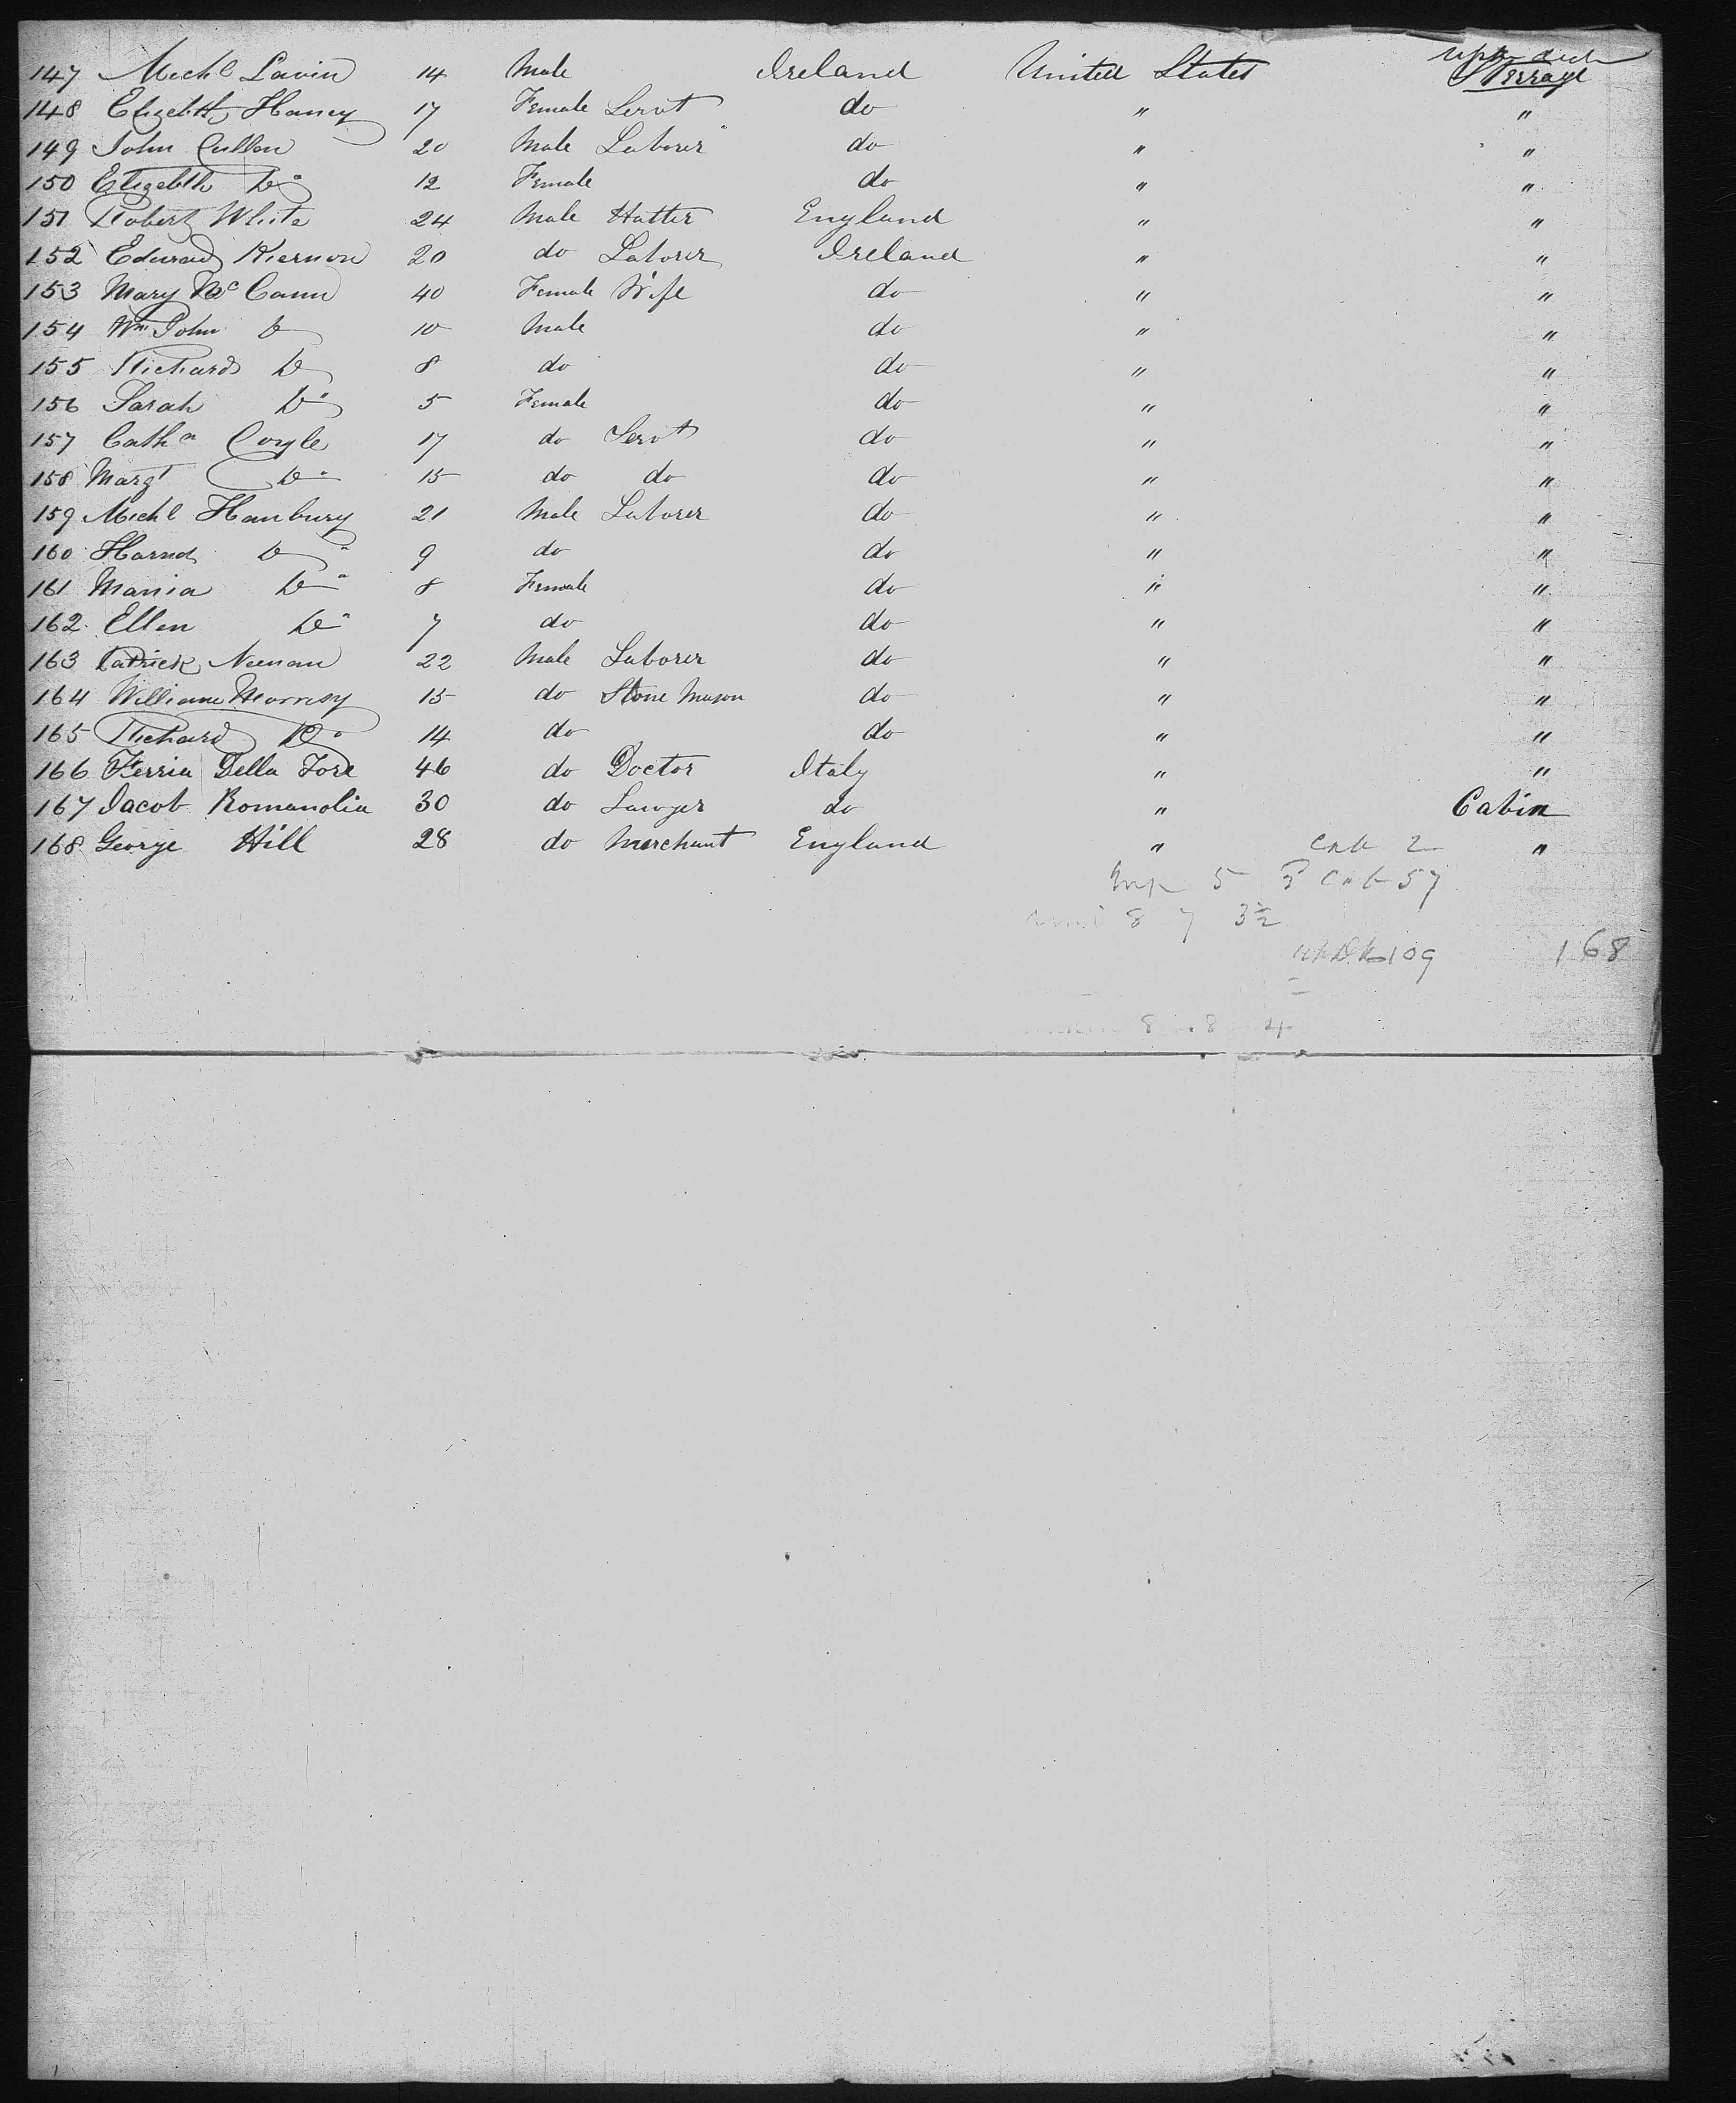 147 Michl Lavin 14 Male Ireland United States Upper deck Sterrage
148 Elizebth Haney 17 Female Servt do " "
149 John Cullen 20 Male Laborer do " "
150 Elizebth Do 12 Female do " "
151 Robert White 24 Male Hatter England " "
152 Edward Kiernon 20 do Laborer Ireland " "
153 Mary McCann 40 Female Wife do " "
154 Wm John Do 10 Male do " "
155 Richard Do 8 do do " "
156 Sarah Do 5 Female do " "
157 Catha Coyle 17 do Servt do " "
158 Margt Do 15 do do do " "
159 Michl Hanbury 21 Male Laborer do " "
160 Do 9 do do " "
161 Maria Do 8 Female do " "
162 Ellen Do 7 do do " "
163 Patrick Neenan 22 Male Laborer do " "
164 William Morrisy 15 do Stone Mason do " "
165 Richard Do 14 do do " "
166 Ferria Della Tore 46 do Doctor Italy " "
167 Jacob Romanolia 30 do Lawyer do " Cabin
168 George Hill 28 do Merchant England " "
Cab 2
5 2 Cab 57
8 7 3½
upDk 109 168
8 8 4